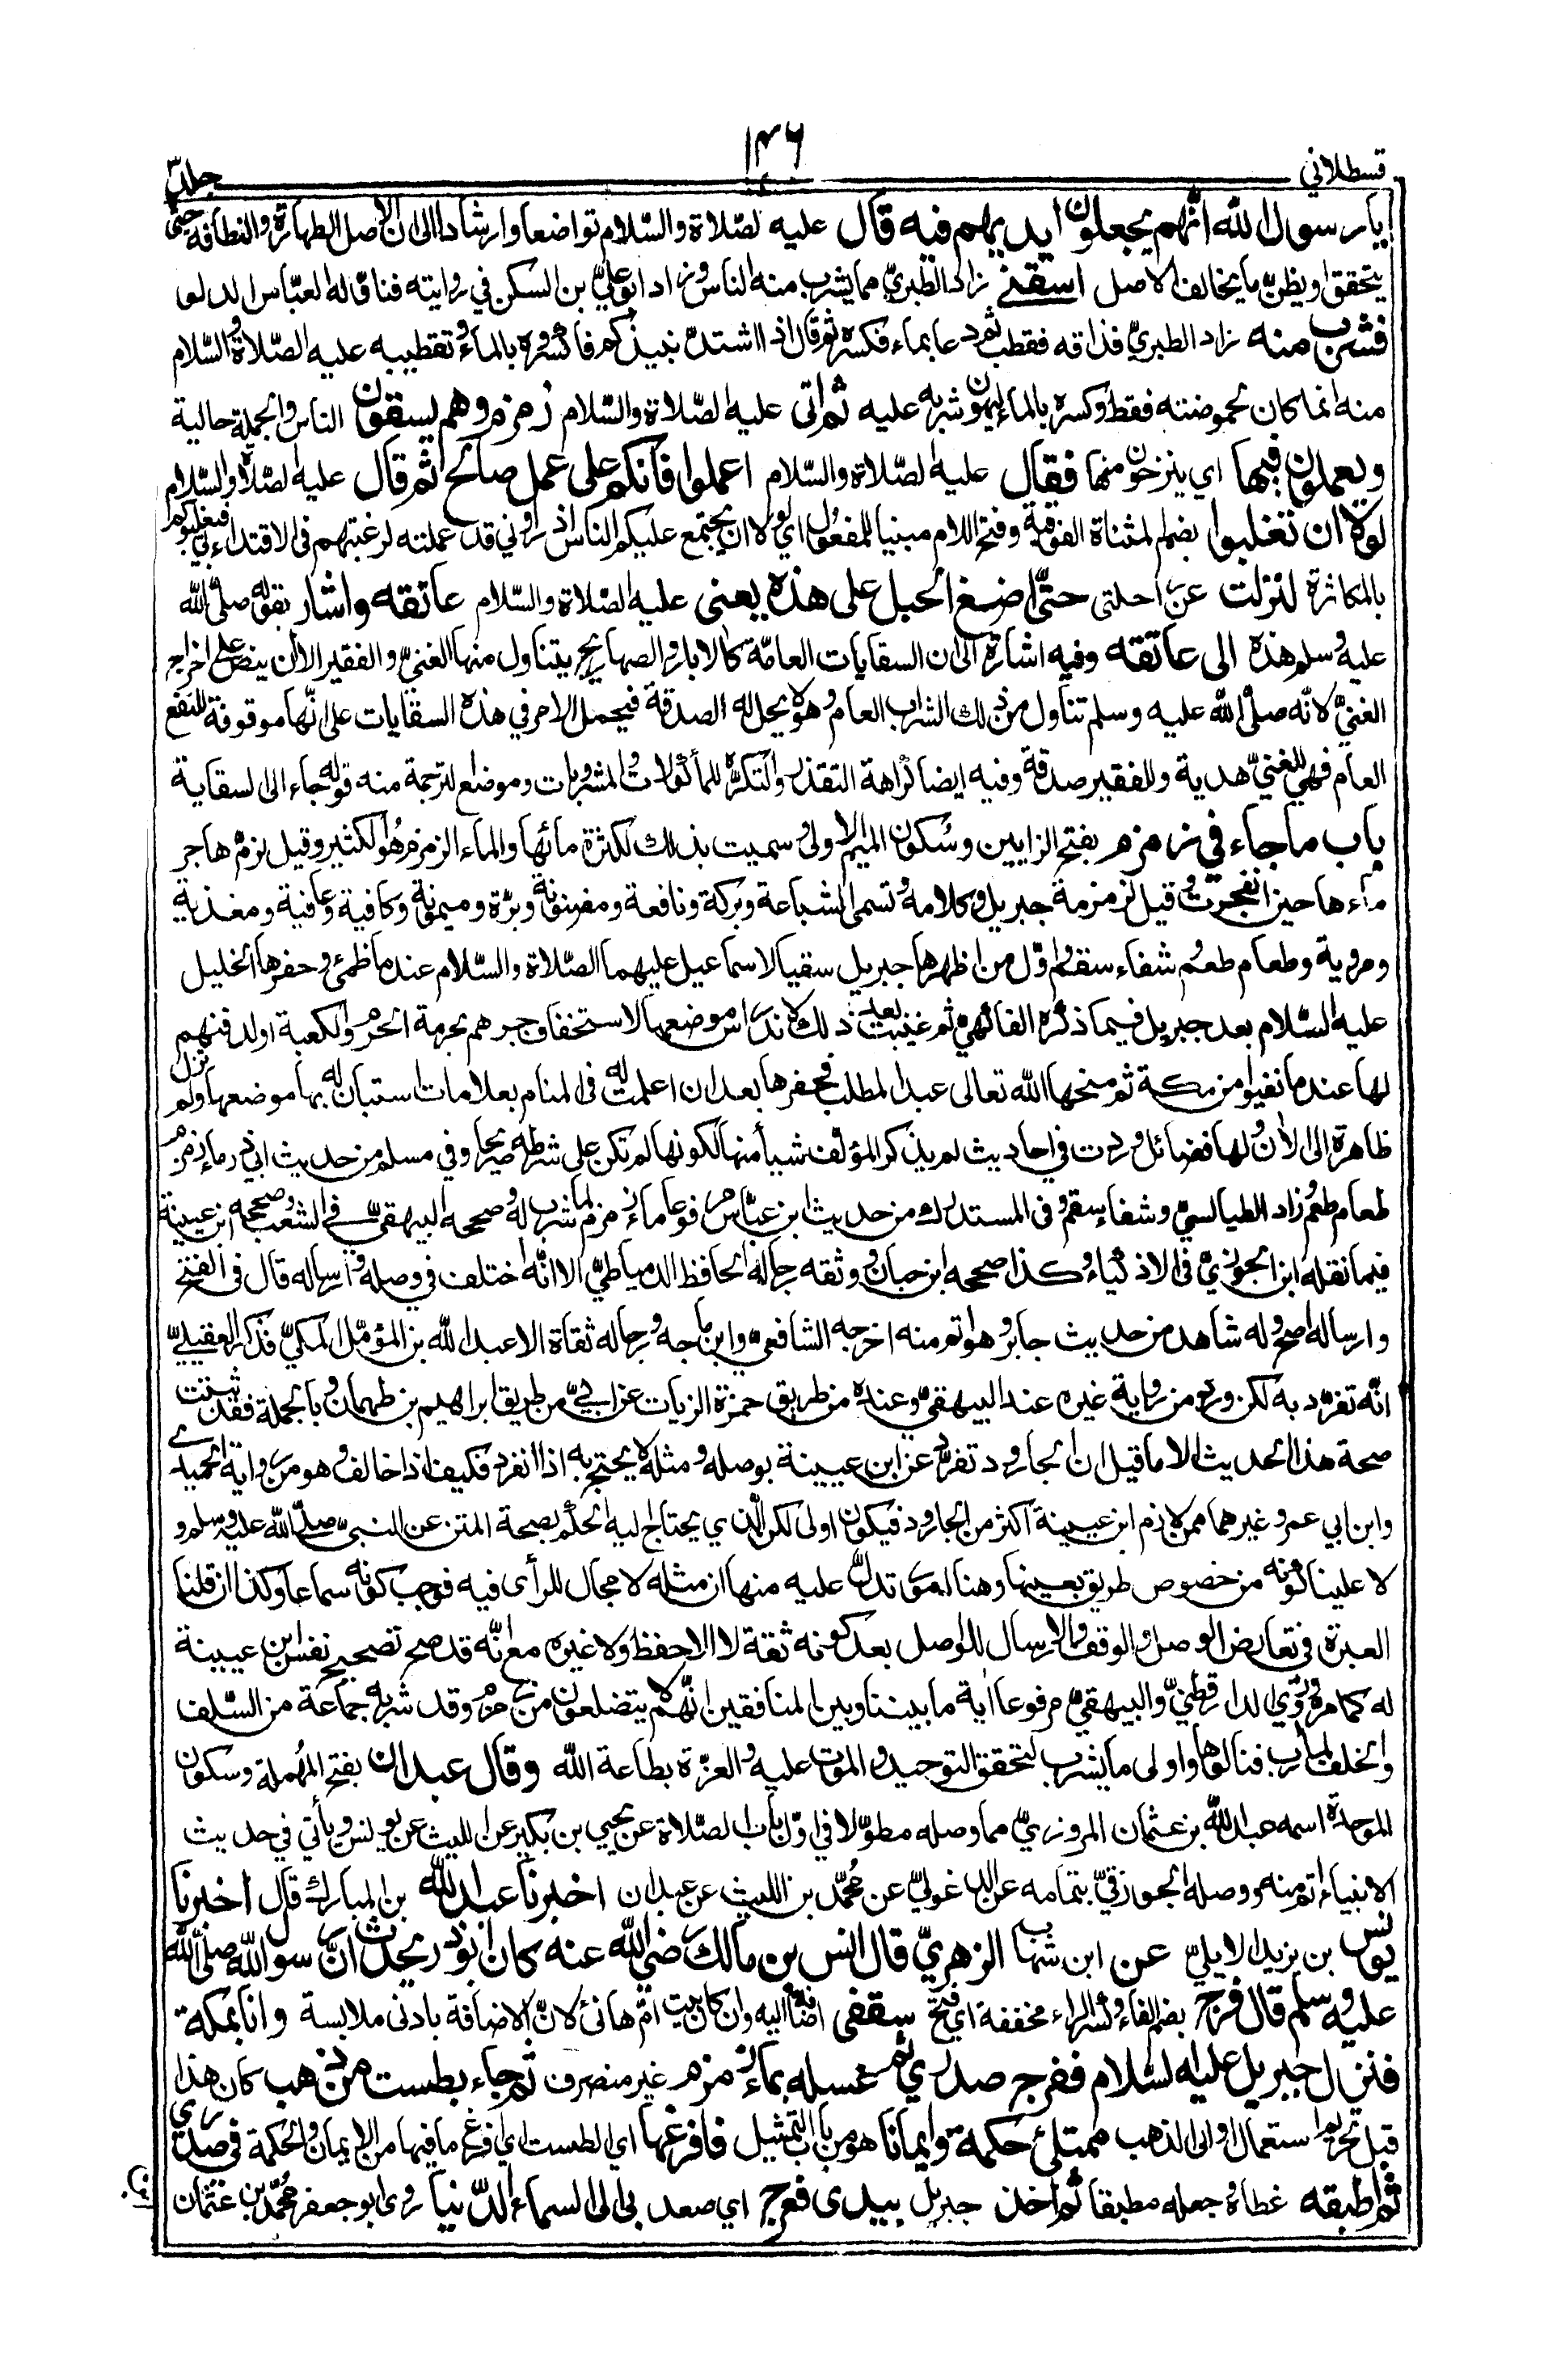 قسطلاني
١٤٦
جلد٣
يا رسول الله انهم يجعلون ايديهم فيه قال عليه الصلاة والسلام تواضعا وارشادا الى ان الاصل الطهارة والنظافة حتى
يتحقق او يظن ما يخالف الاصل اسقني زاد الطبري مما يشرب منه الناس وزاد ابو علي بن السكن في روايته فناوله العباس الدلو
فشرب منه زاد الطبري فذاقه فقطب ثم دعا بماء فكسره ثم قال اذا اشتد نبيذكم فاكسروه بالماء وتقطيبه عليه الصلاة والسلام
منه انما كان لحموضته فقط وكسره بالماء ليهون شربه عليه ثم اتى عليه الصلاة والسلام زمزم وهم يسقون الناس والجملة حالية
ويعملون فيها اي ينزحون منها فقال عليه الصلاة والسلام اعملوا فانكم على عمل صالح ثم قال عليه الصلاة والسلام
لولا ان تغلبوا بضم المثناة الفوقية وفتح اللام مبنيا للمفعول اي لولا ان يجتمع عليكم الناس اذ راوني قد عملته لرغبتهم في الاقتداء بي فيغلبوكم
بالمكاثرة لنزلت عن راحلتي حتى اضع الحبل على هذه يعني عليه الصلاة والسلام عاتقه واشار بقوله صلى الله
عليه وسلم هذه الى عاتقه وفيه اشارة الى ان السقايات العامة كالابار والصهاريج يتناول منها الغني والفقير الا ان ينص على اخراج
الغني لانه صلى الله عليه وسلم تناول من ذلك الشراب العام وهو لا يحل له الصدقة فيحمل الامر في هذه السقايات على انها موقوفة للنفع
العام فهي للغني هدية وللفقير صدقة وفيه ايضا كراهة التقذر والتكره للمأكولات والمشروبات وموضع الترجمة منه قوله جاء الى السقاية
باب ما جاء في زمزم بفتح الزايين وسكون الميم الاولى وسميت بذلك لكثرة مائها والماء الزمزم هو الكثير وقيل لزم هاجر
ماءها حين انفجرت وقيل لزمزمة جبريل وكلامه وتسمى الشباعة وبركة ونافعة ومضنونة وبرة وميمونة وكافية وعافية ومغذية
ومروية وطعام طعم وشفاء سقم واول من اظهرها جبريل سقيا لاسماعيل عليهما الصلاة والسلام عندما ظمئ وحفرها الخليل
عليه السلام بعد جبريل فيما ذكره الفاكهي ثم غيبت بعد ذلك لاندراس موضعها لاستخفاف جرهم بحرمة الحرم والكعبة او لدفنهم
لها عندما نفيوا من مكة ثم منحها الله تعالى عبد المطلب فحفرها بعد ان اعلمت له في المنام بعلامات استبان له بها موضعها ولم تزل
ظاهرة الى الان ولها فضائل وردت في احاديث لم يذكر المؤلف شيأ منها لكونها لم تكن على شرطه صريحا وفي مسلم من حديث ابي ذر ماء زمزم
طعام طعم زاد الطيالسي وشفاء سقم وفي المستدرك من حديث ابن عباس مرفوعا ماء زمزم لما شرب له وصححه البيهقي في الشعب وصححه ابن عيينة
فيما نقله ابن الجوزي في الاذكياء وكذا صححه ابن حبان ووثقه رجاله الحافظ الدمياطي الا انه اختلف في وصله وارساله قال في الفتح
وارساله اصح وله شاهد من حديث جابر وهو اتم منه اخرجه الشافعي وابن ماجه ورجاله ثقاة الا عبد الله بن المؤمل المكي فذكر العقيلي
انه تفرد به لكن ورد من رواية غيره عند البيهقي وعنده من طريق حمزة الزيات عن ابي من طريق ابراهيم بن طهمان وبالجملة فقد ثبتت
صحة هذا الحديث الا ما قيل ان الجارود تفرد عن ابن عيينة بوصله ومثله لا يحتج به اذا انفرد فكيف اذا خالف وهو من رواية الحميدي
وابن ابي عمر وغيرهما ممن لازم ابن عيينة اكثر من الجارود فيكون اولى لكن الذي يحتاج اليه الحكم بصحة المتن عن النبي صلى الله عليه وسلم و
لا علينا كونه من خصوص طريق بعينها وهنا امور تدل عليه منها ان مثله لا مجال للرأى فيه فوجب كونه سماعا وكذا ان قلنا
العبرة في تعارض الوصل والوقف والارسال للواصل بعد كونه ثقة لا الاحفظ ولا غيره مع انه قد صح تصحيح نفس ابن عيينة
له كما مر وروى الدارقطني والبيهقي مرفوعا اية ما بيننا وبين المنافقين انهم لا يتضلعون من زمزم وقد شربه جماعة من السلف
والخلف لمآرب فنالوها واولى ما يشرب لتحقق التوحيد والموت عليه والعزة بطاعة الله وقال عبدان بفتح المهملة وسكون
الموحدة اسمه عبد الله بن عثمان المروزي مما وصله مطولا في اول باب الصلاة عن يحيى بن بكير عن الليث عن يونس ويأتي في حديث
الانبياء اتم منه ووصله الجوزقي بتمامه عن الدغولي عن محمد بن الليث عن عبدان اخبرنا عبد الله بن المبارك قال اخبرنا
يونس بن يزيد الايلي عن ابن شهاب الزهري قال انس بن مالك رضي الله عنه كان ابوذر يحدث ان رسول الله صلى الله
عليه وسلم قال فرج بضم الفاء وكسر الراء مخففة اي فتح سقفى اضافه اليه وان كان بيت ام هانئ لان الاضافة بادنى ملابسة وانا بمكة
فنزل جبريل عليه السلام ففرج صدري ثم غسله بماء زمزم غير منصرف ثم جاء بطست من ذهب كان هذا
قبل تحريم استعمال اواني الذهب ممتلئ حكمة وايمانا هو من باب التمثيل فافرغها اي الطست اي افرغ ما فيها من الايمان والحكمة في صدري
ثم اطبقه غطاه وجعله مطبقا ثم اخذ جبريل بيدى فعرج اي صعد بي الى السماء الدنيا روى ابو جعفر محمد بن عثمان